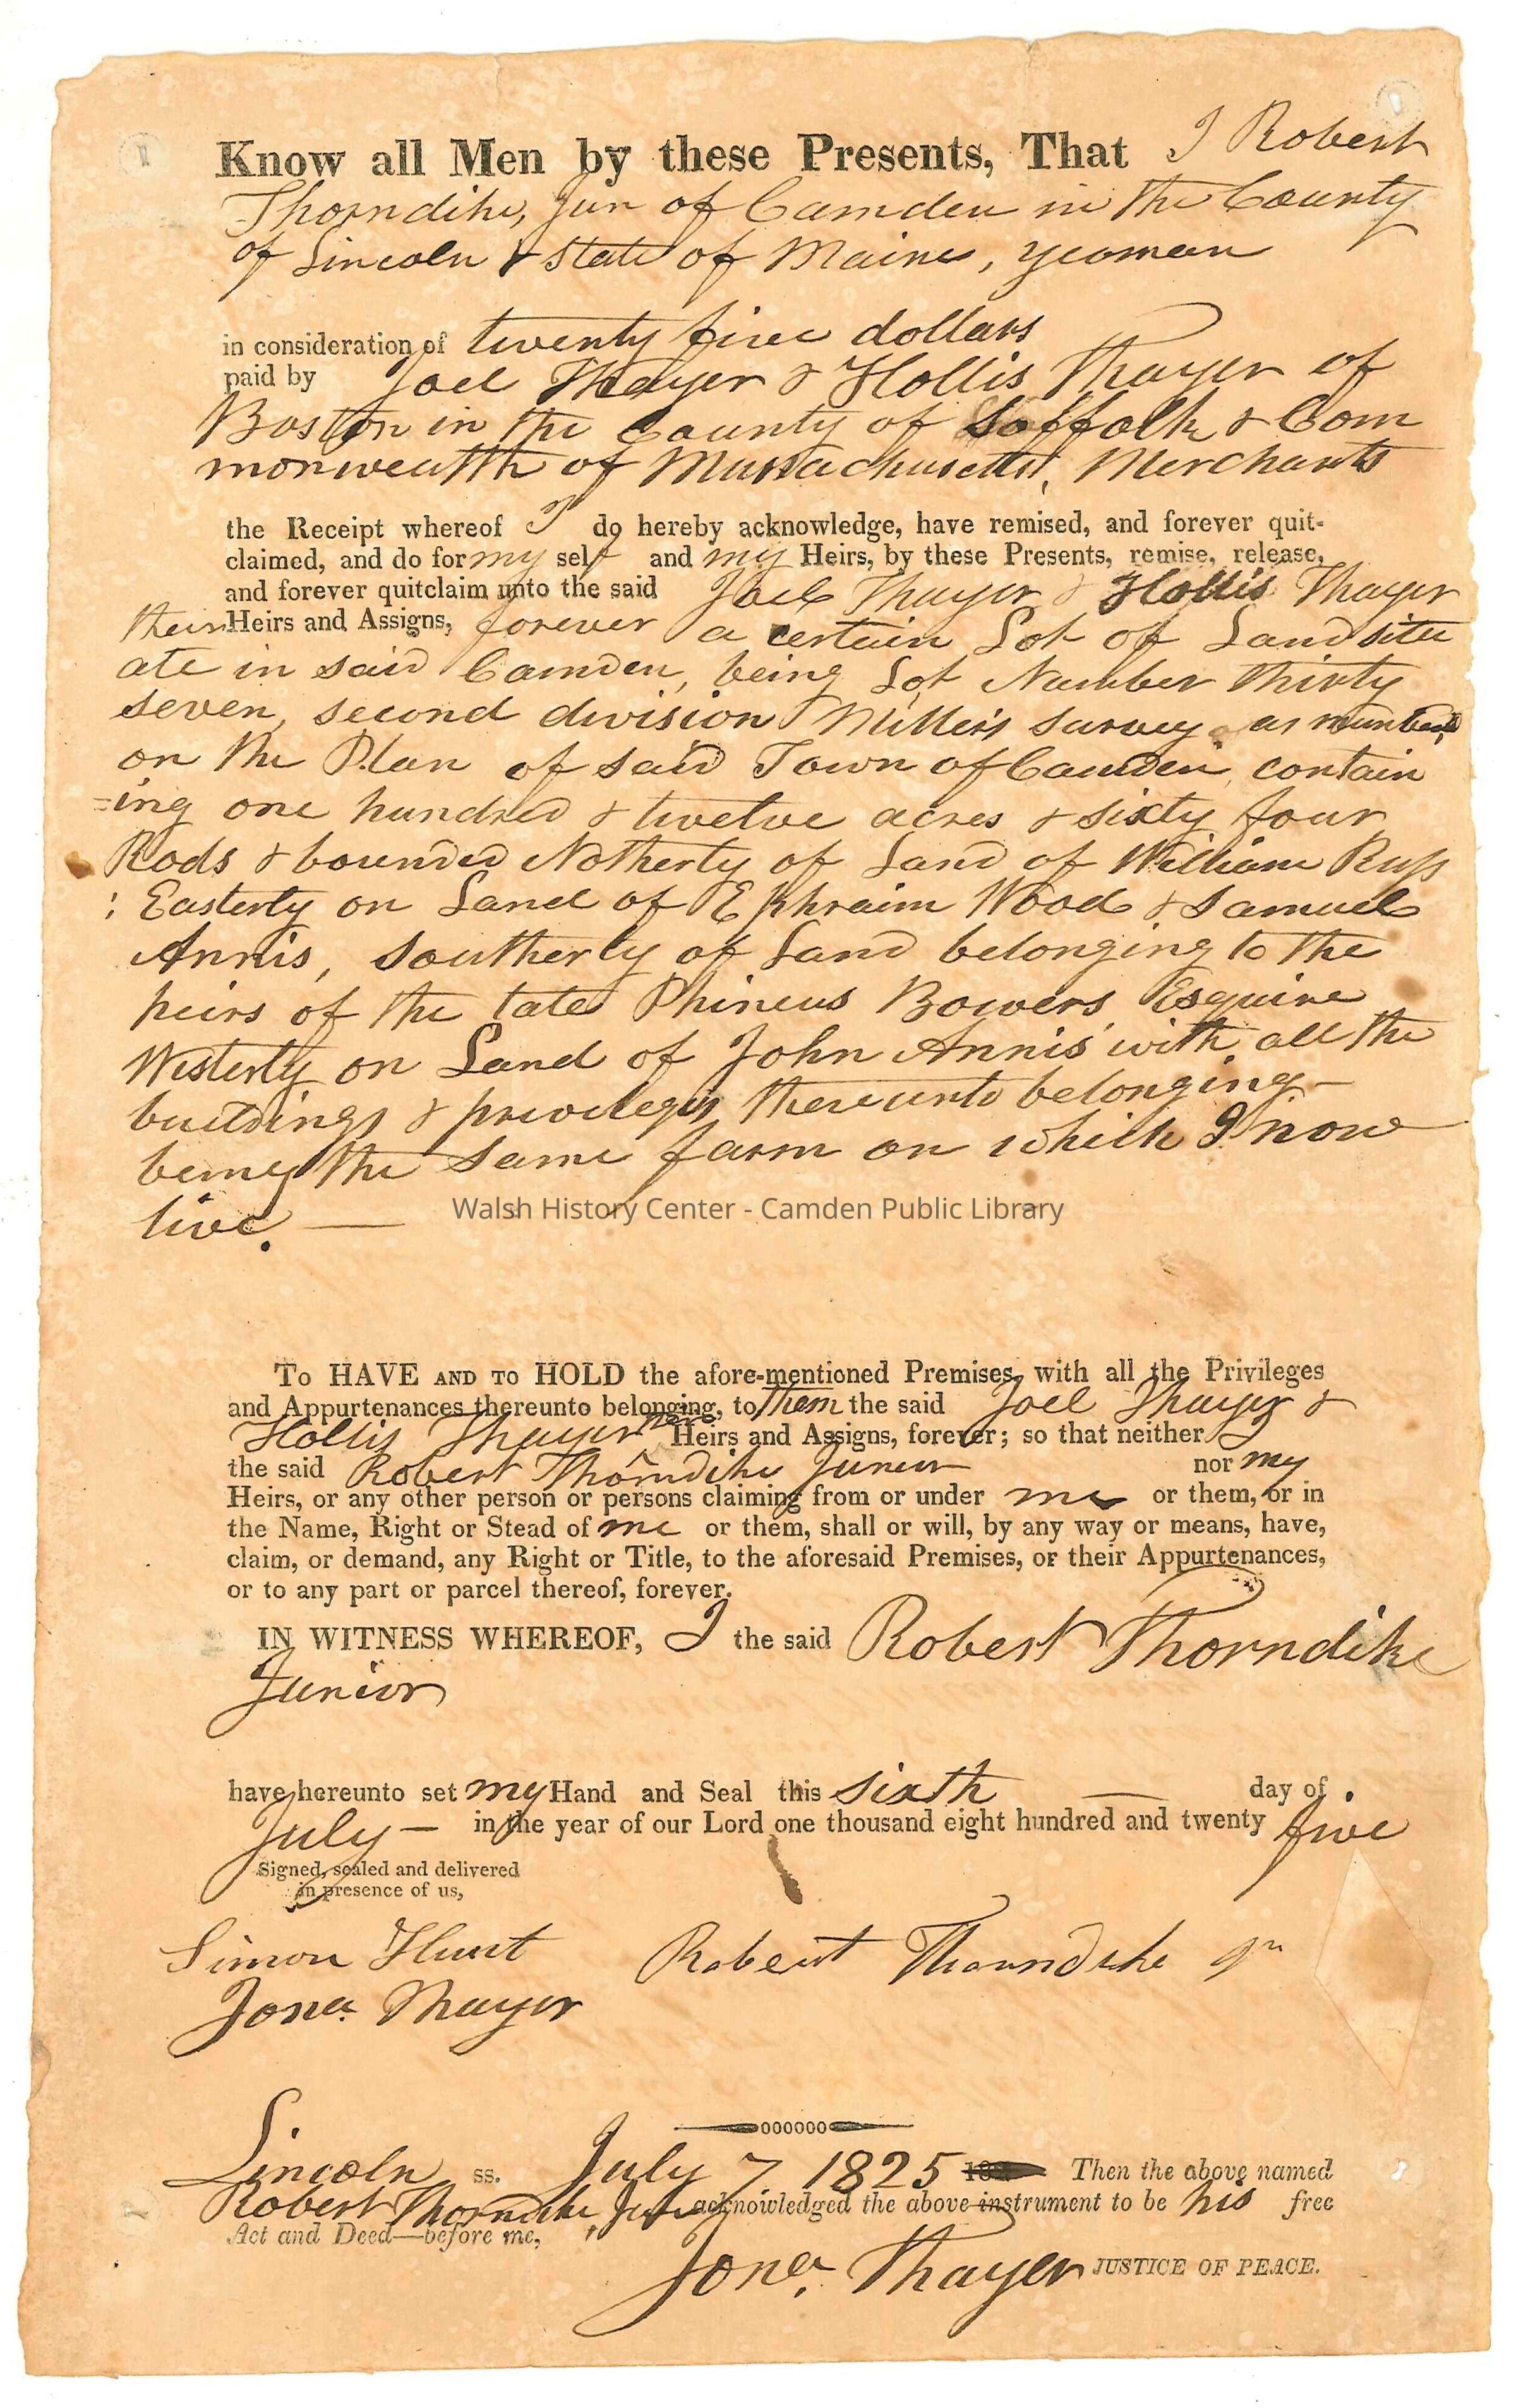 Know all Men by these Presents, That I Robert
Thorndike, Jun of Camden in the County
of Lincoln & State of Maine, yeoman
in consideration of twenty five dollars
paid by Joel Thayer & Hollis Thayer of
Boston in the County of Suffolk & Com
monwealth of Massachusetts, Merchants
the Receipt whereof I do hereby acknowledge, have remised, and forever quit-
claimed, and do for my self and my Heirs, by these Presents, remise, release,
and forever quitclaim unto the said Joel Thayer & Hollis Thayer
their Heirs and Assigns, forever a certain Lot of Land situ
ate in said Camden, being Lot Number thirty
seven, second division Miller's survey as numbered
on the Plan of said Town of Camden, contain
=ing one hundred & twelve acres & sixty four
Rods & bounded Notherly of Land of William Russ
: Easterly on Land of Ephraim Wood & Samuel
Annis, Southerly of Land belonging to the
heirs of the late Phineus Bowers, Esquire
Westerly on Land of John Annis with all the
buildings & privileges thereunto belonging -
being the same farm on which I now
live. —
Walsh History Center - Camden Public Library
To HAVE AND TO HOLD the afore-mentioned Premises, with all the Privileges
and Appurtenances thereunto belonging, to them the said Joel Thayer &
Hollis Thayer their Heirs and Assigns, forever; so that neither I
the said Robert Thorndike Junior nor my
Heirs, or any other person or persons claiming from or under me or them, or in
the Name, Right or Stead of me or them, shall or will, by any way or means, have,
claim, or demand, any Right or Title, to the aforesaid Premises, or their Appurtenances,
or to any part or parcel thereof, forever.
IN WITNESS WHEREOF, I the said Robert Thorndike
Junior
have hereunto set my Hand and Seal this sixth — day of
July — in the year of our Lord one thousand eight hundred and twenty five
Signed, sealed and delivered
in presence of us,
Simon Hunt Robert Thorndike Jr
Jona. Thayer
Lincoln ss. July 7 1825 Then the above named
Robert Thorndike, Jun acknowledged the above instrument to be his free
Act and Deed—before me,
Jona. Thayer JUSTICE OF PEACE.